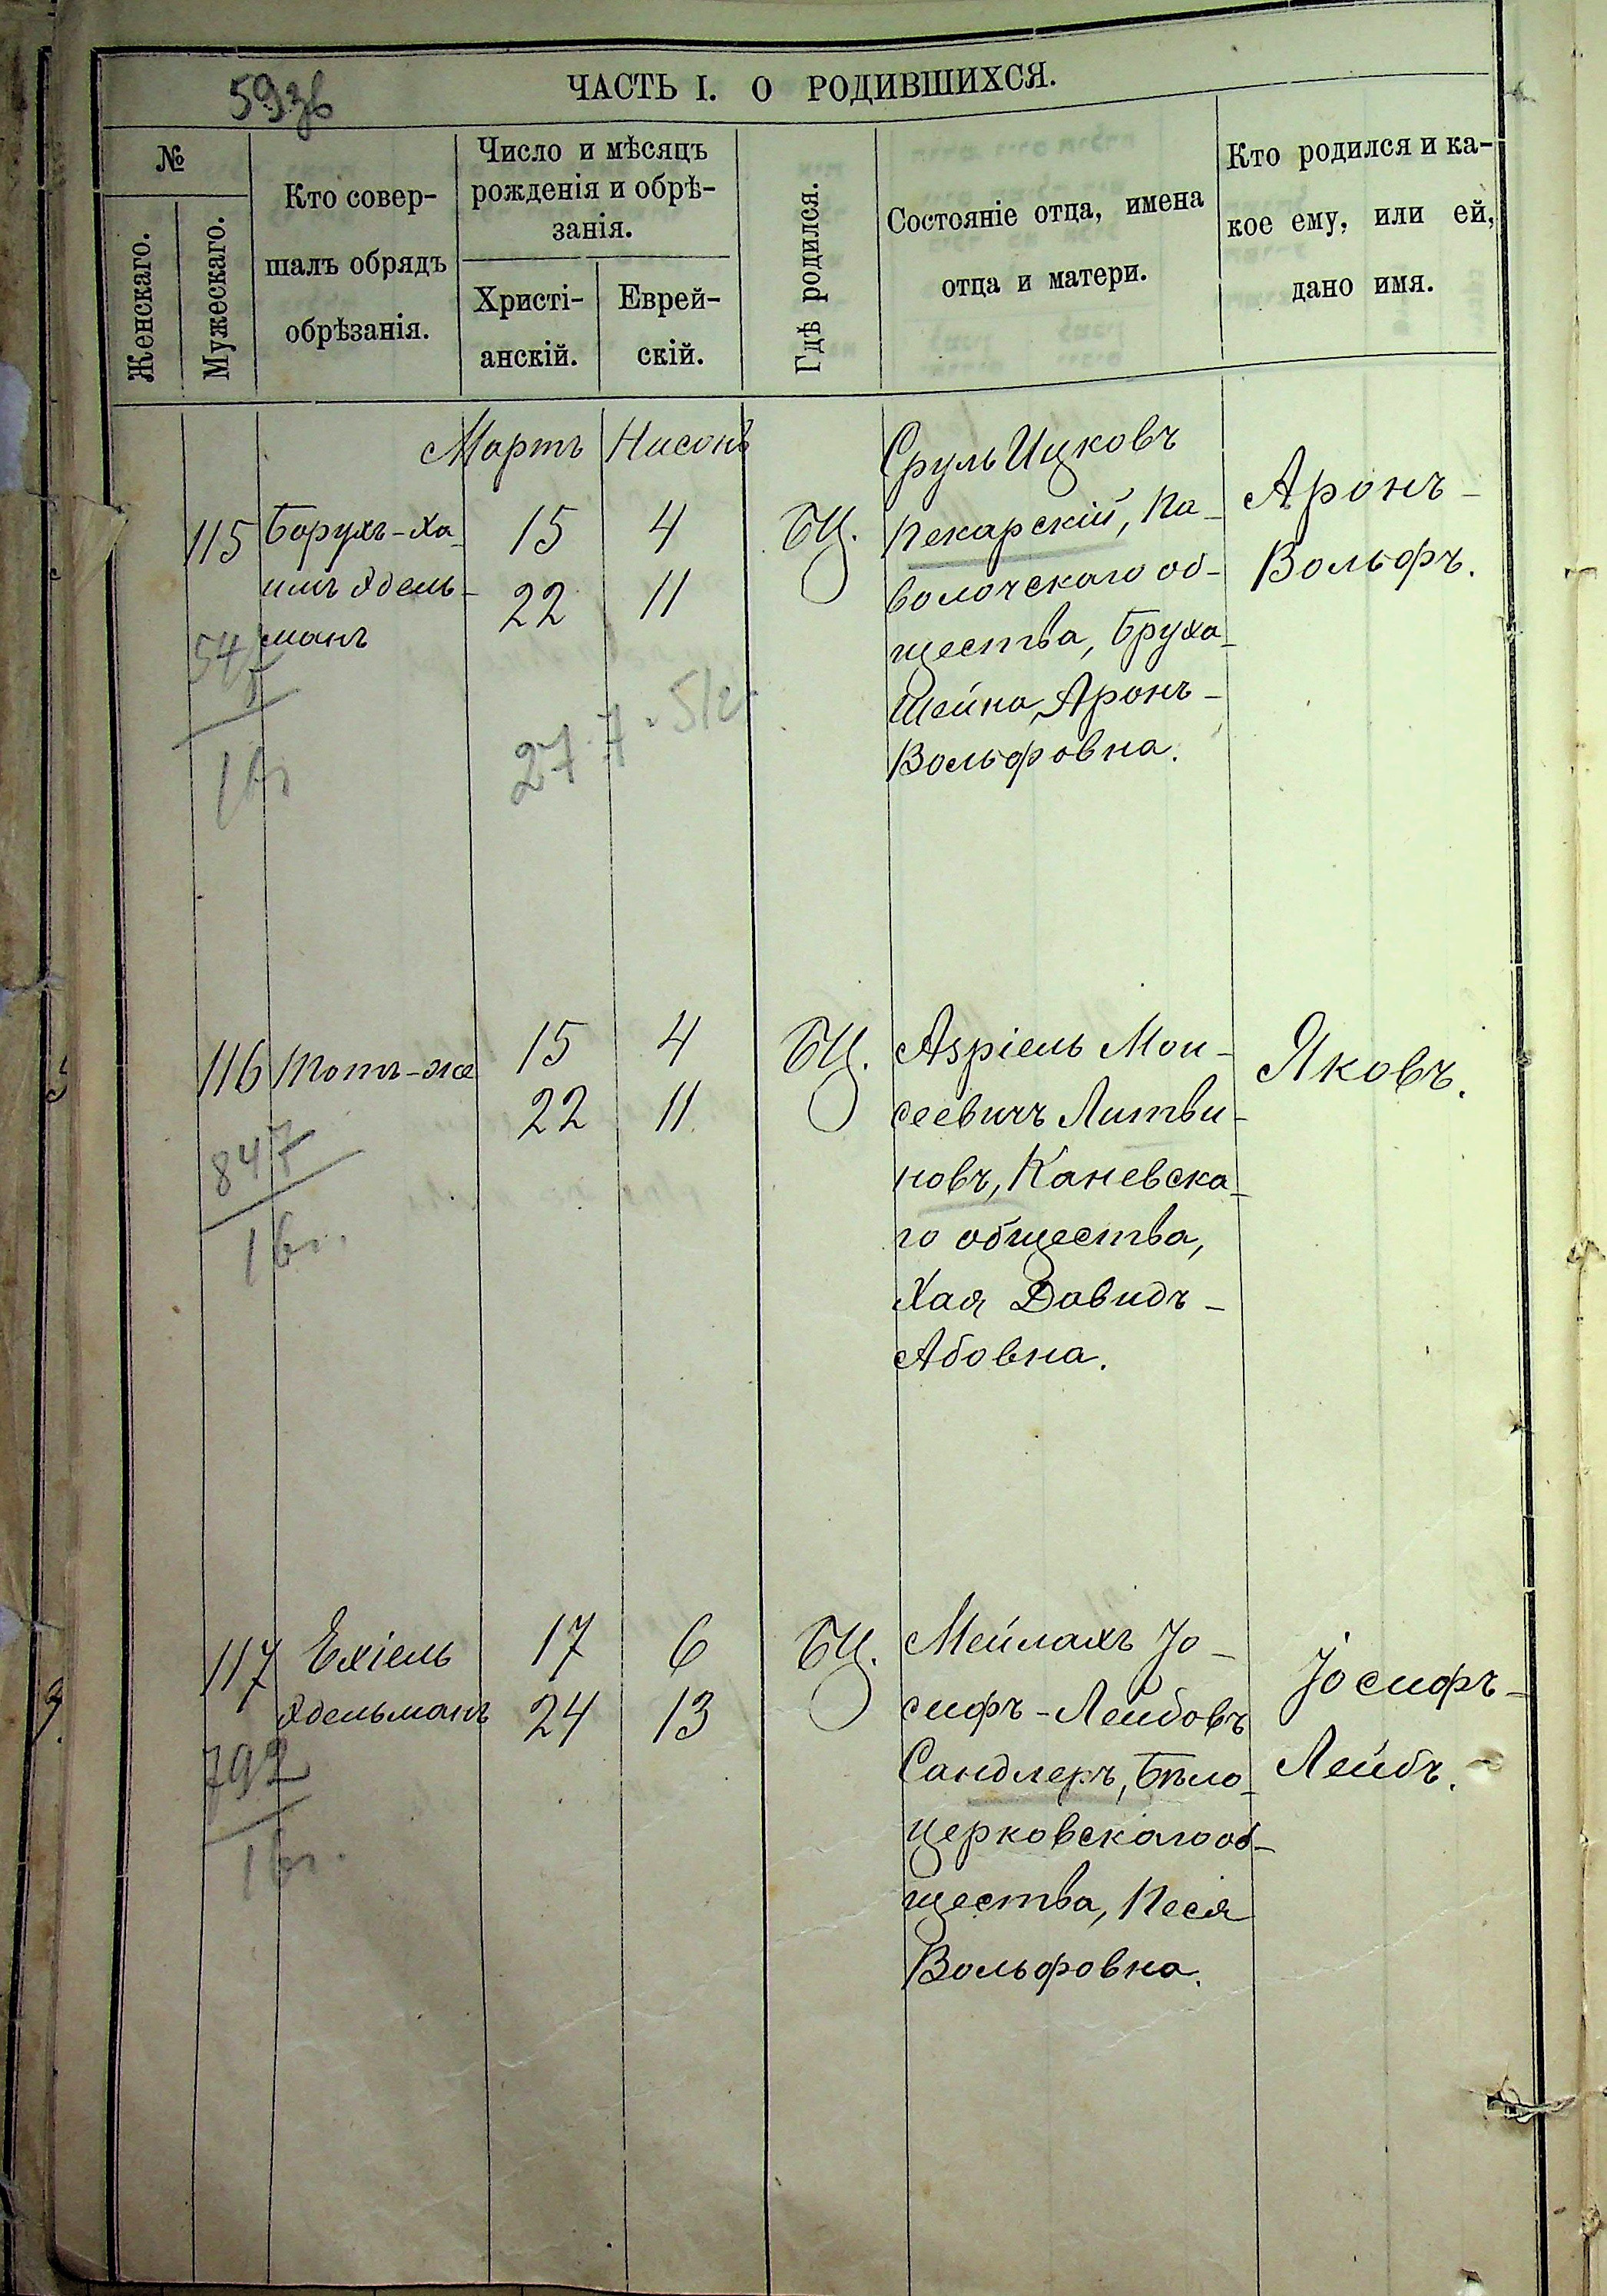 593б
ЧАСТЬ I. О РОДИВШИХСЯ.
№
Женскаго.
Мужескаго.
Кто совер-
шалъ обрядъ
обрѣзанія.
Число и мѣсяцъ
рожденія и обрѣ-
занія.
Христі-
анскій.
Еврей-
скій.
Гдѣ родился.
Состояніе отца, имена
отца и матери.
Кто родился и ка-
кое ему, или ей,
дано имя.
Мартъ Нисонъ
115
Борухъ-Ха
имъ Эдель-
манъ
15 4
22 11
БЦ.
Сруль Ицковъ
Пекарскій, Па-
волочскаго об-
щества, Бруха-
Шейна Аронъ-
Вольфовна.
Аронъ-
Вольфъ.
27.7.51г.
116
Тотъ-же
15 4
22 11
БЦ.
Азріель Мои-
сеевичъ Литви-
новъ, Каневска-
го общества,
Хая Давидъ-
Абовна.
Яковъ.
847
16г.
117
Ехіель
Эдельманъ
17 6
24 13
БЦ.
Мейлахъ Іо-
сифъ-Лейбовъ
Сандлеръ, Бѣло-
церковскаго об-
щества, Песя
Вольфовна.
Іосифъ-
Лейбъ.
792
16г.